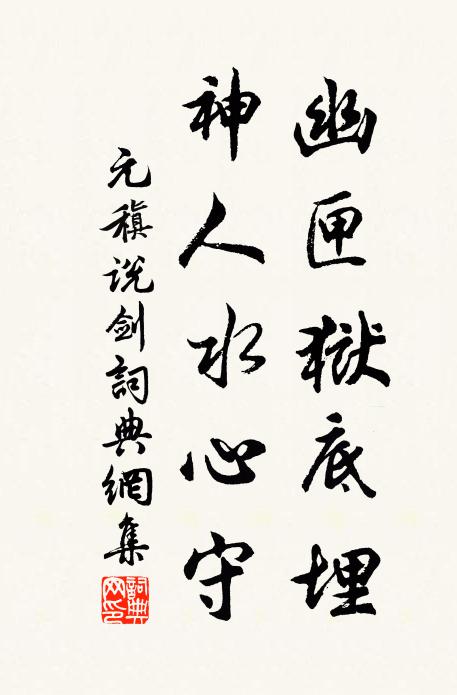 幽匣獄底埋
神人水心守
元稹说劍詞典網集
詞典網印